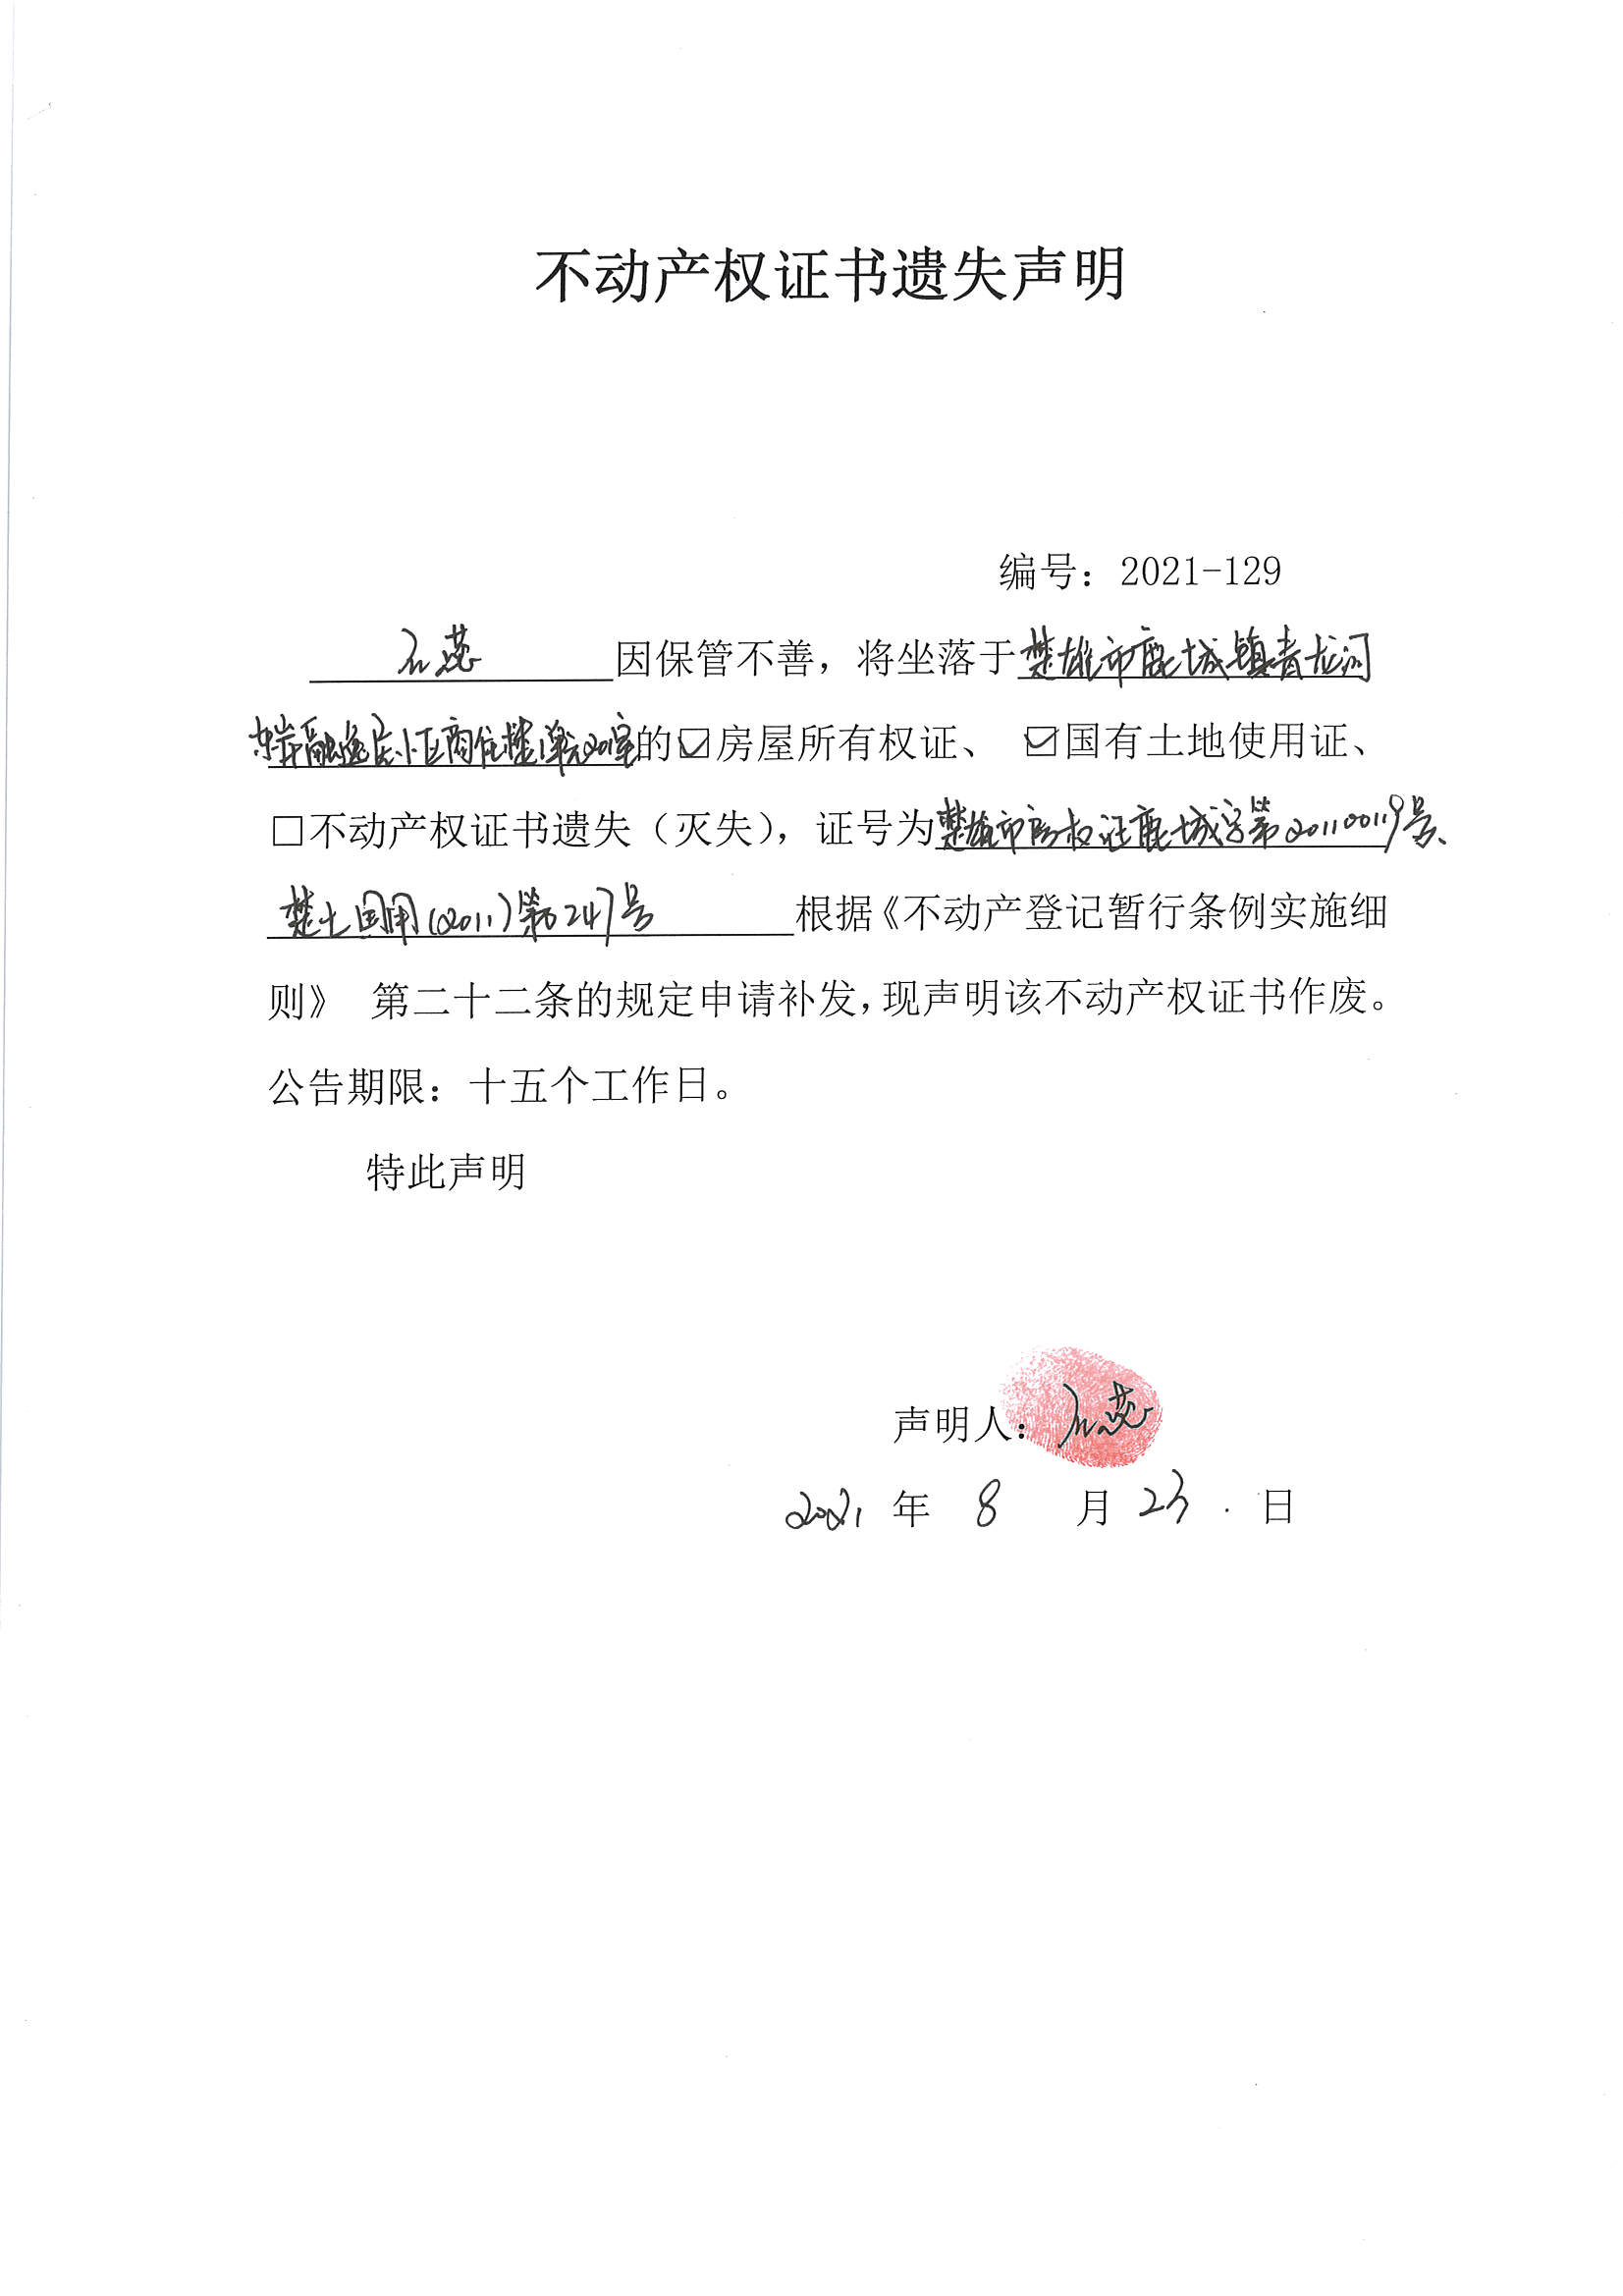 不动产权证书遗失声明
编号：2021-129
因保管不善，将坐落于楚雄市鹿城镇青龙河
东岸融逸居小区商住楼1单元201室的☑房屋所有权证、 ☑国有土地使用证、
□不动产权证书遗失（灭失），证号为楚雄市房权证鹿城字第201100119号、
楚土国用(2011)第247号 根据《不动产登记暂行条例实施细
则》 第二十二条的规定申请补发，现声明该不动产权证书作废。
公告期限：十五个工作日。
特此声明
声明人：
2021 年 8 月 23 日